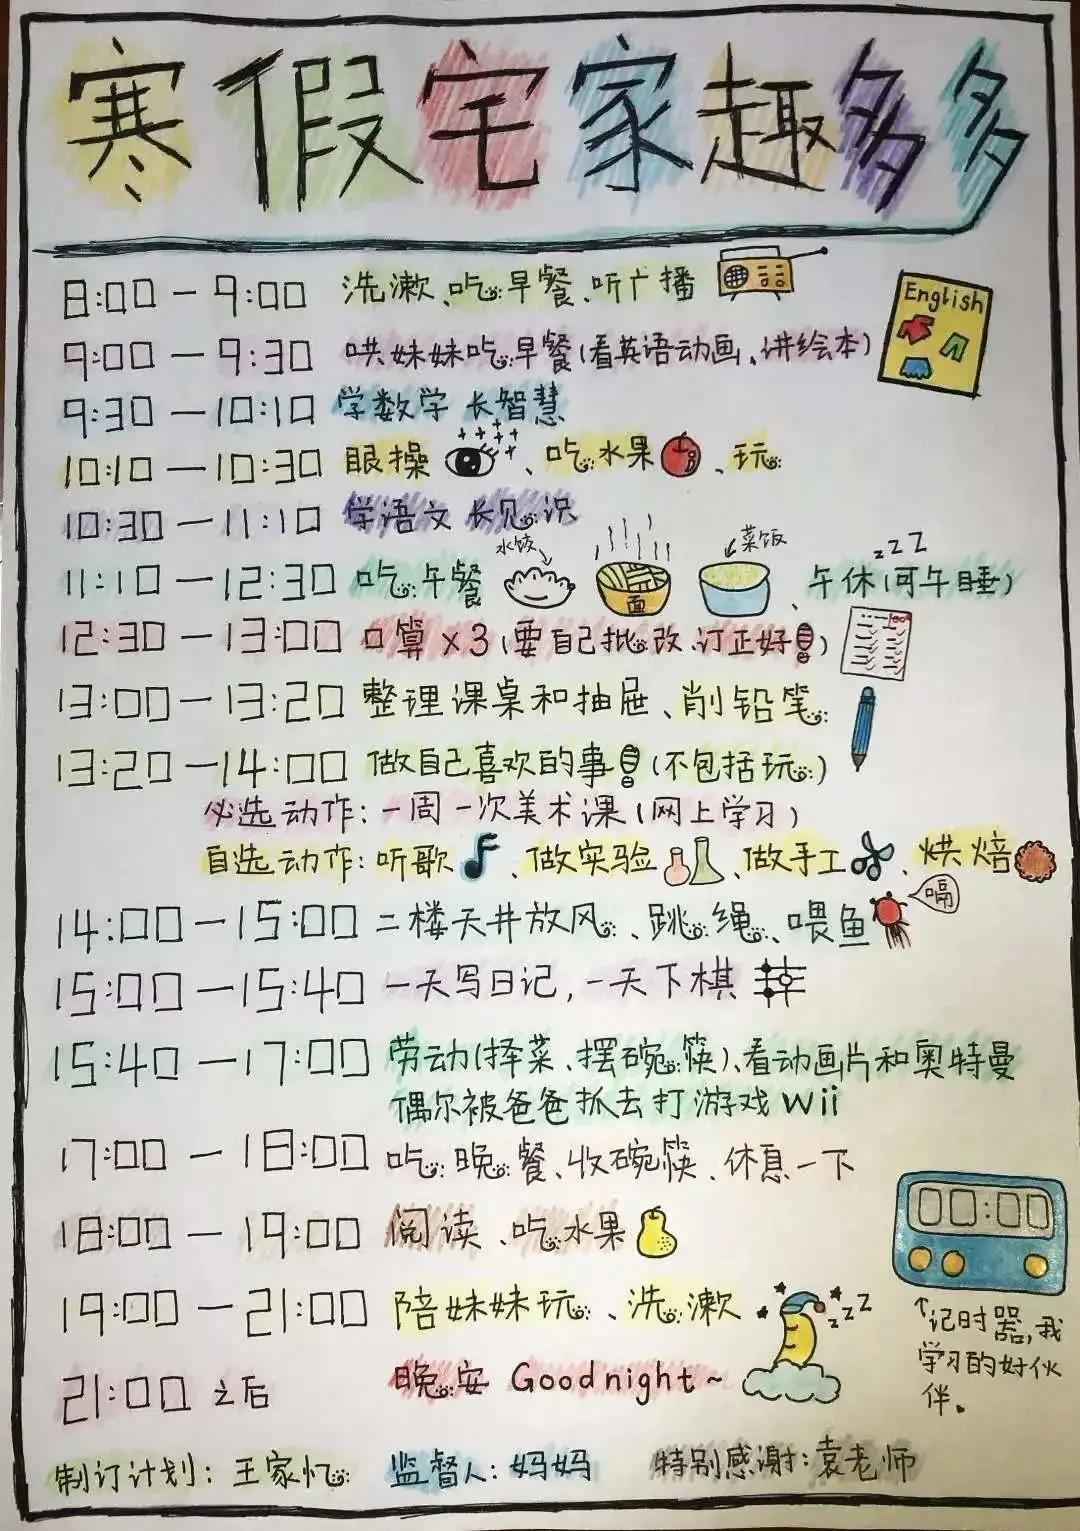 寒假宅家趣多多
8:00—9:00 洗漱、吃早餐、听广播
English
9:00—9:30 哄妹妹吃早餐(看英语动画、讲绘本)
9:30—10:10 学数学 长智慧
10:10—10:30 眼操、吃水果、玩
10:30—11:10 学语文 长见识
水饺 菜饭 zzZ
11:10—12:30 吃午餐 面、午休(可午睡)
12:30—13:00 口算×3(要自己批改、订正好!)
100
13:00—13:20 整理课桌和抽屉、削铅笔
13:20—14:00 做自己喜欢的事!(不包括玩)
必选动作:一周一次美术课(网上学习)
自选动作:听歌、做实验、做手工、烘焙
嗝
14:00—15:00 二楼天井放风、跳绳、喂鱼
15:00—15:40 一天写日记,一天下棋
15:40—17:00 劳动(择菜、摆碗筷)、看动画片和奥特曼
偶尔被爸爸抓去打游戏Wii
17:00—18:00 吃晚餐、收碗筷、休息一下
18:00—19:00 阅读、吃水果
00:00
19:00—21:00 陪妹妹玩、洗漱
zzZ
↑记时器,我
学习的好伙
伴。
21:00之后 晚安 Good night~
制订计划:王家忆 监督人:妈妈 特别感谢:袁老师